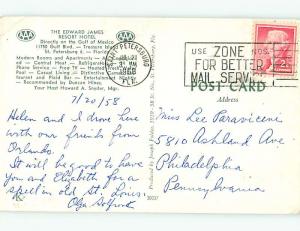 THE EDWARD JAMES
RESORT HOTEL
Directly on the Gulf of Mexico
11750 Gulf Blvd. — Treasure Island
St. Petersburg 6, Florida
Modern Rooms and Apartments
Central Heat
Phone Service Free TV
Pool Casual Living Distinctive
Recommended by Duncan Hines
Your Host Howard A. Snyder, Mgr.
AAA
AAA
ST. PETERSBURG
FLA.
USE ZONE NOS.
FOR BETTER
MAIL SERVICE
2¢
POST CARD
Address
7/20/58
Helen and I drove here
with our friends from
Orlando.
It will be good to have
you and Elizabeth for a
spell in old St. Louis.
Olga
Miss Lee Paravicini
5810 Ashland Ave
Philadelphia
Pennsylvania